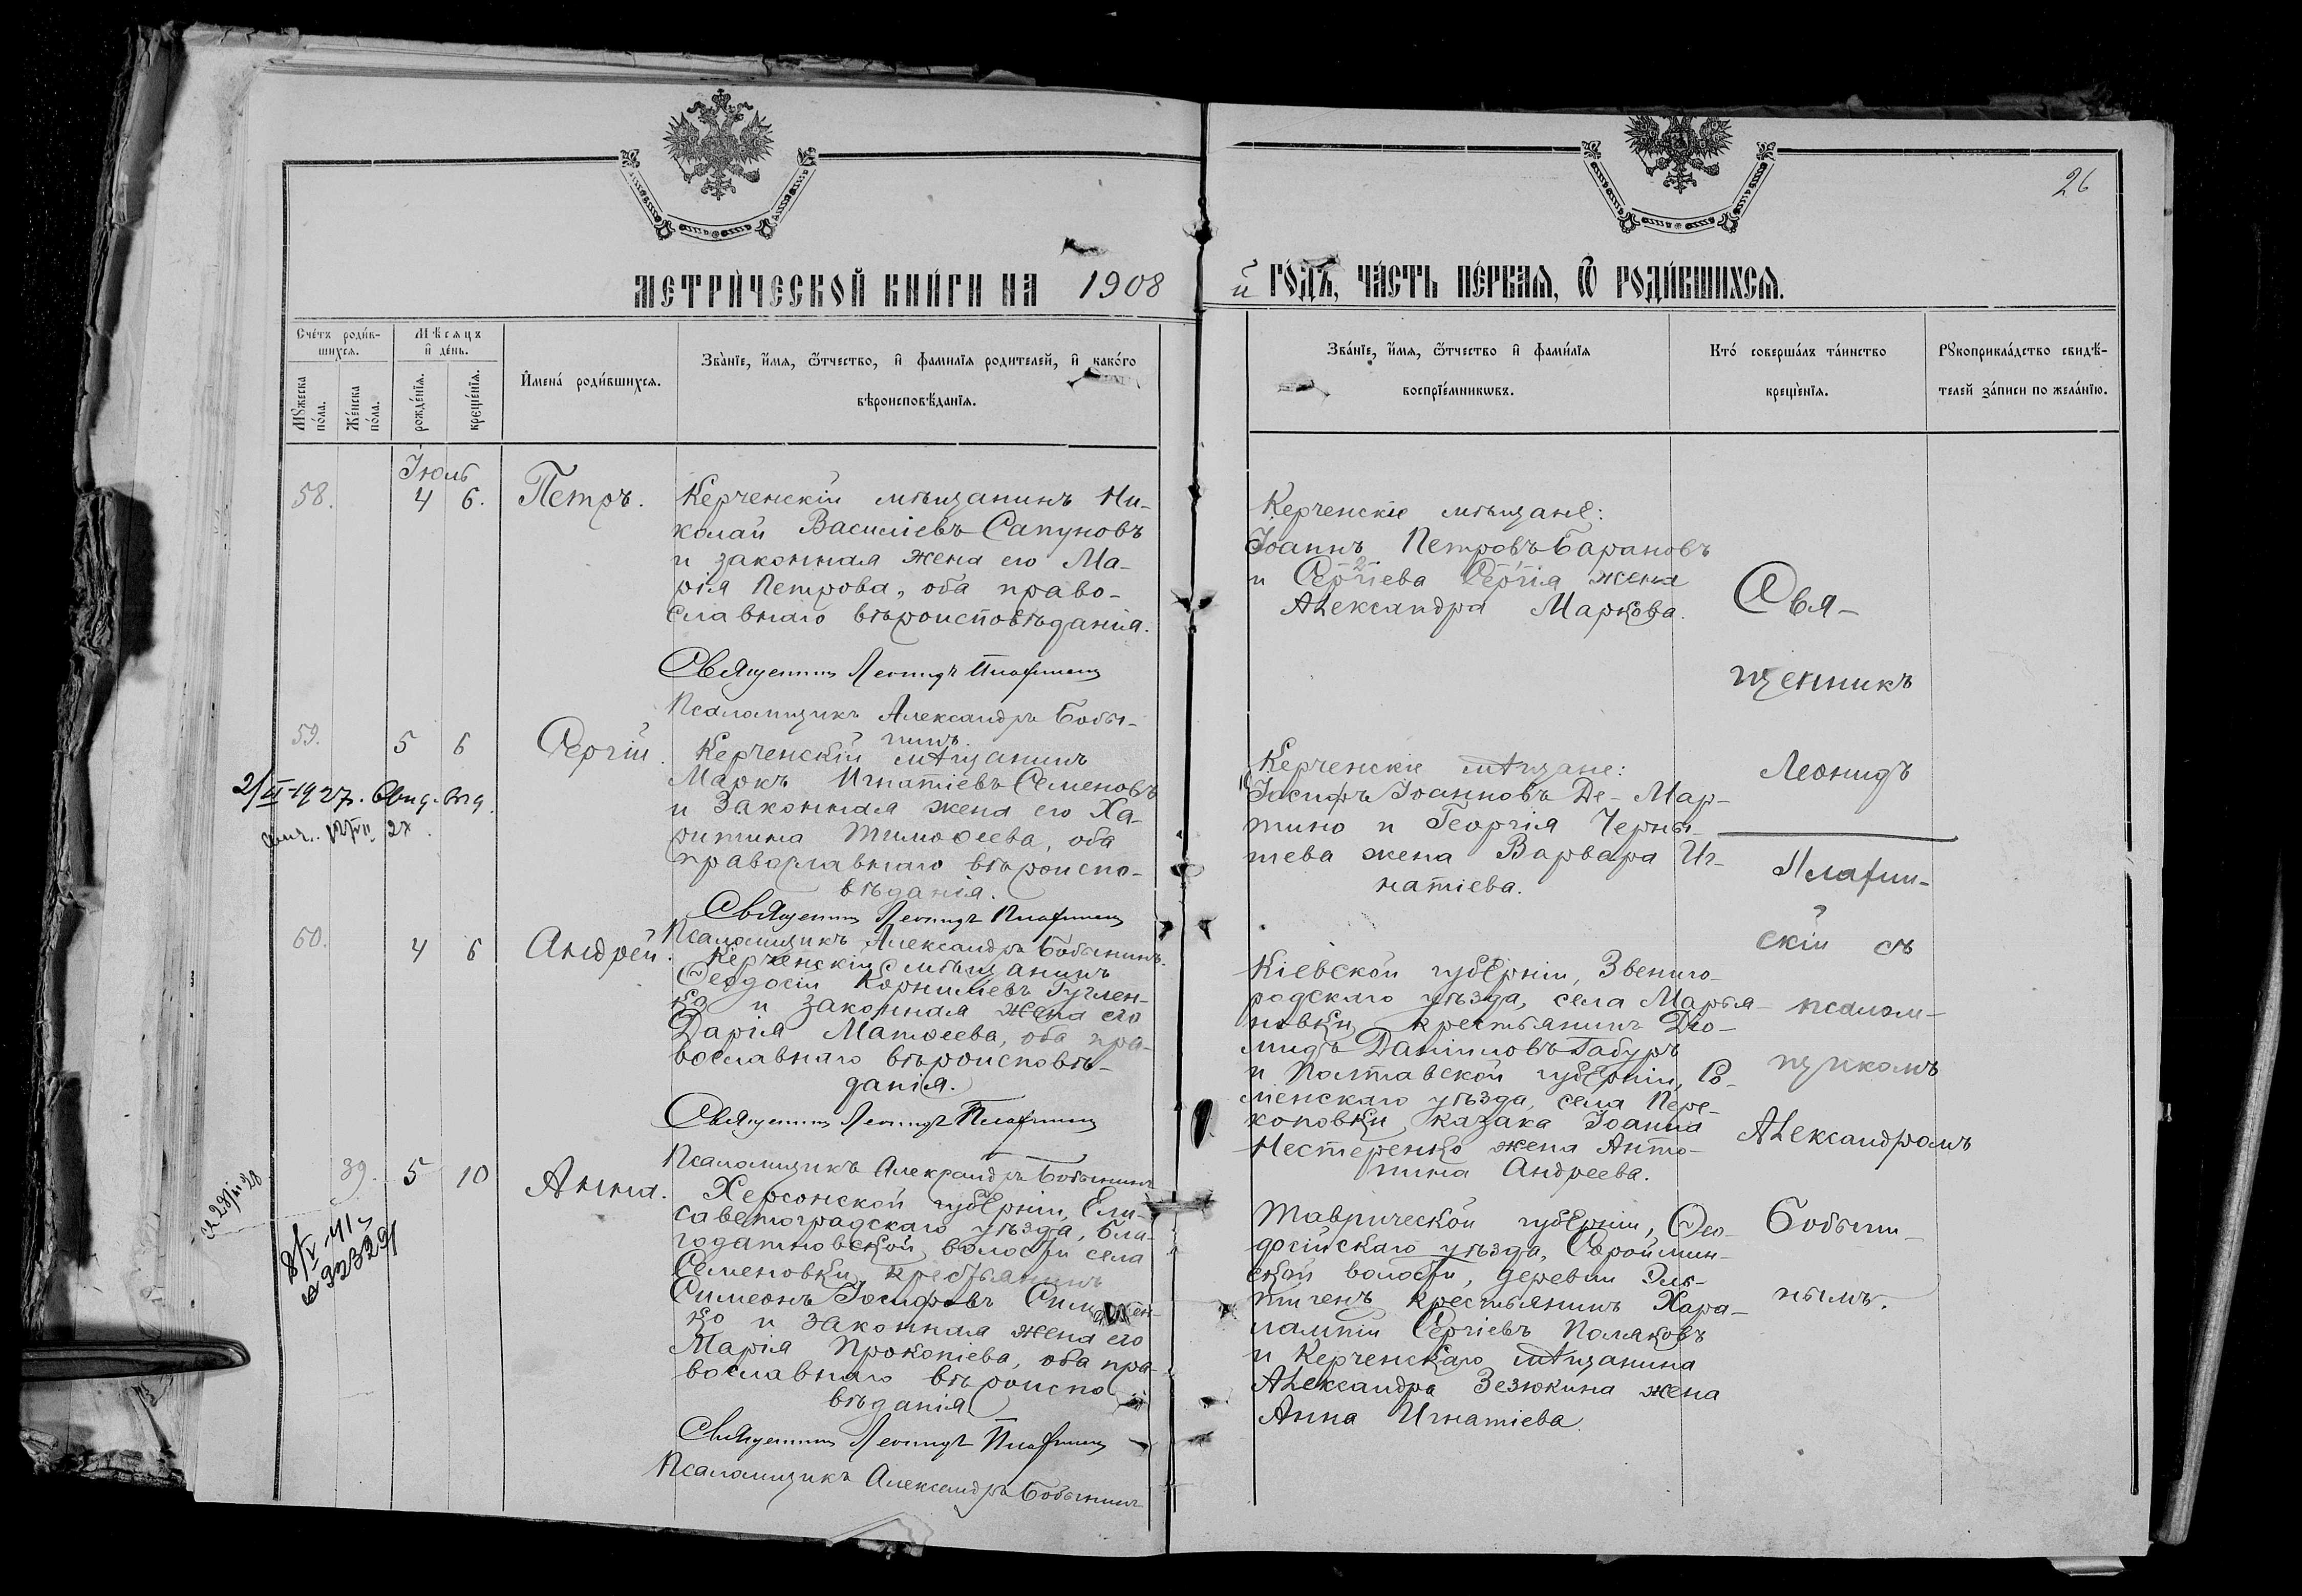 26
МЕТРИЧЕСКОЙ КНИГИ НА 1908 й ГОДЪ, ЧАСТЬ ПЕРВАЯ, Ѿ РОДИВШИХСЯ.
Счетъ родив-
шихся.
Мѣсяцъ
и день.
Мужеска
пола.
Женска
пола.
рожденія.
крещенія.
Имена родившихся.
Званіе, имя, ѿтчество, и фамилія родителей, и какого
вѣроисповѣданія.
Званіе, имя, ѿтчество и фамилія
воспріемникѡвъ.
Кто совершалъ таинство
крещенія.
Рукоприкладство свидѣ-
телей записи по желанію.
Іюль
58. 4 6. Петръ.
Керченскій мѣщанинъ Ни-
колай Василіевъ Сапуновъ
и законная жена его Ма-
рія Петрова, оба право-
славнаго вѣроисповѣданія.
Священникъ Леонидъ
Псаломщикъ Александръ Бобы-
нинъ.
Керченскіе мѣщане:
Іоаннъ Петровъ Барановъ
и Сергіева Сергія жена
Александра Маркова.
59. 5 6 Сергій.
Керченскій мѣщанинъ
Маркъ Игнатіевъ Семеновъ
и законная жена его Ха-
ритина Тимоѳеева, оба
православнаго вѣроиспо-
вѣданія.
Священникъ Леонидъ
Псаломщикъ Александръ Бобынинъ.
2/VI-1927. Свид. выд.
27.
Керченскіе мѣщане:
Іосифъ Іоанновъ Де-Мар-
тино и Георгія Черны-
шева жена Варвара Иг-
натіева.
60. 4 6 Андрей.
Керченскій мѣщанинъ
Ѳеодосій Корниліевъ Гуглен-
ко и законная жена его
Дарія Матѳеева, оба пра-
вославнаго вѣроисповѣ-
данія.
Священникъ Леонидъ
Псаломщикъ Александръ Бобынинъ
Кіевской губерніи, Звениго-
родскаго уѣзда, села Марья-
новки, крестьянинъ Діо-
мидъ Даніиловъ Габуръ
и Полтавской губерніи, Ро-
менскаго уѣзда, села Пере-
коповки, казака Іоанна
Нестеренко жена Анто-
нина Андреева.
39. 5 10 Анна.
Херсонской губерніи, Ели-
саветоградскаго уѣзда, Бла-
годатновской волости села
Семеновки, крестьянинъ
Симеонъ Іосифовъ
ко и законная жена его
Марія Прокопіева, оба пра-
вославнаго вѣроиспо-
вѣданія.
Священникъ Леонидъ
Псаломщикъ Александръ Бобынинъ
Таврической губерніи, Ѳео-
досійскаго уѣзда, Сараймин-
ской волости, деревни
крестьянинъ Хара-
лампій Сергіевъ Поляковъ
и Керченскаго мѣщанина
Александра Зезюкина жена
Анна Игнатіева.
Свя-
щенникъ
Леонидъ
скій съ
псалом-
щикомъ
Александромъ
Бобыни-
нымъ.